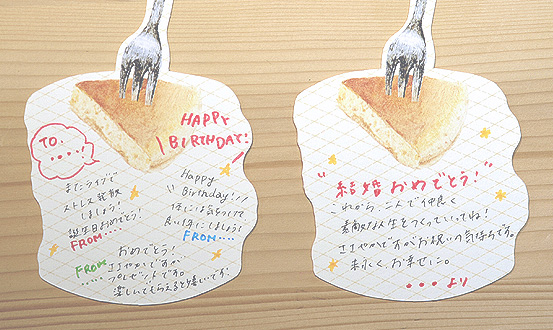 HAPPY
BIRTHDAY!
TO.
・・・・・
またライブで
ストレス発散
しましょう!
誕生日おめでとう!
FROM・・・・
Happy
Birthday!
体には気をつけて
良い1年にしましょう!
FROM・・・・
おめでとう!
ささやかですが
プレゼントです。
楽しんでもらえると嬉しいです!
FROM
・・・・・
"結婚おめでとう!"
これから、二人で仲良く
素敵な人生をつくっていってね!
ささやかですがお祝いの気持ちです。
末永く、お幸せに。
・・・より